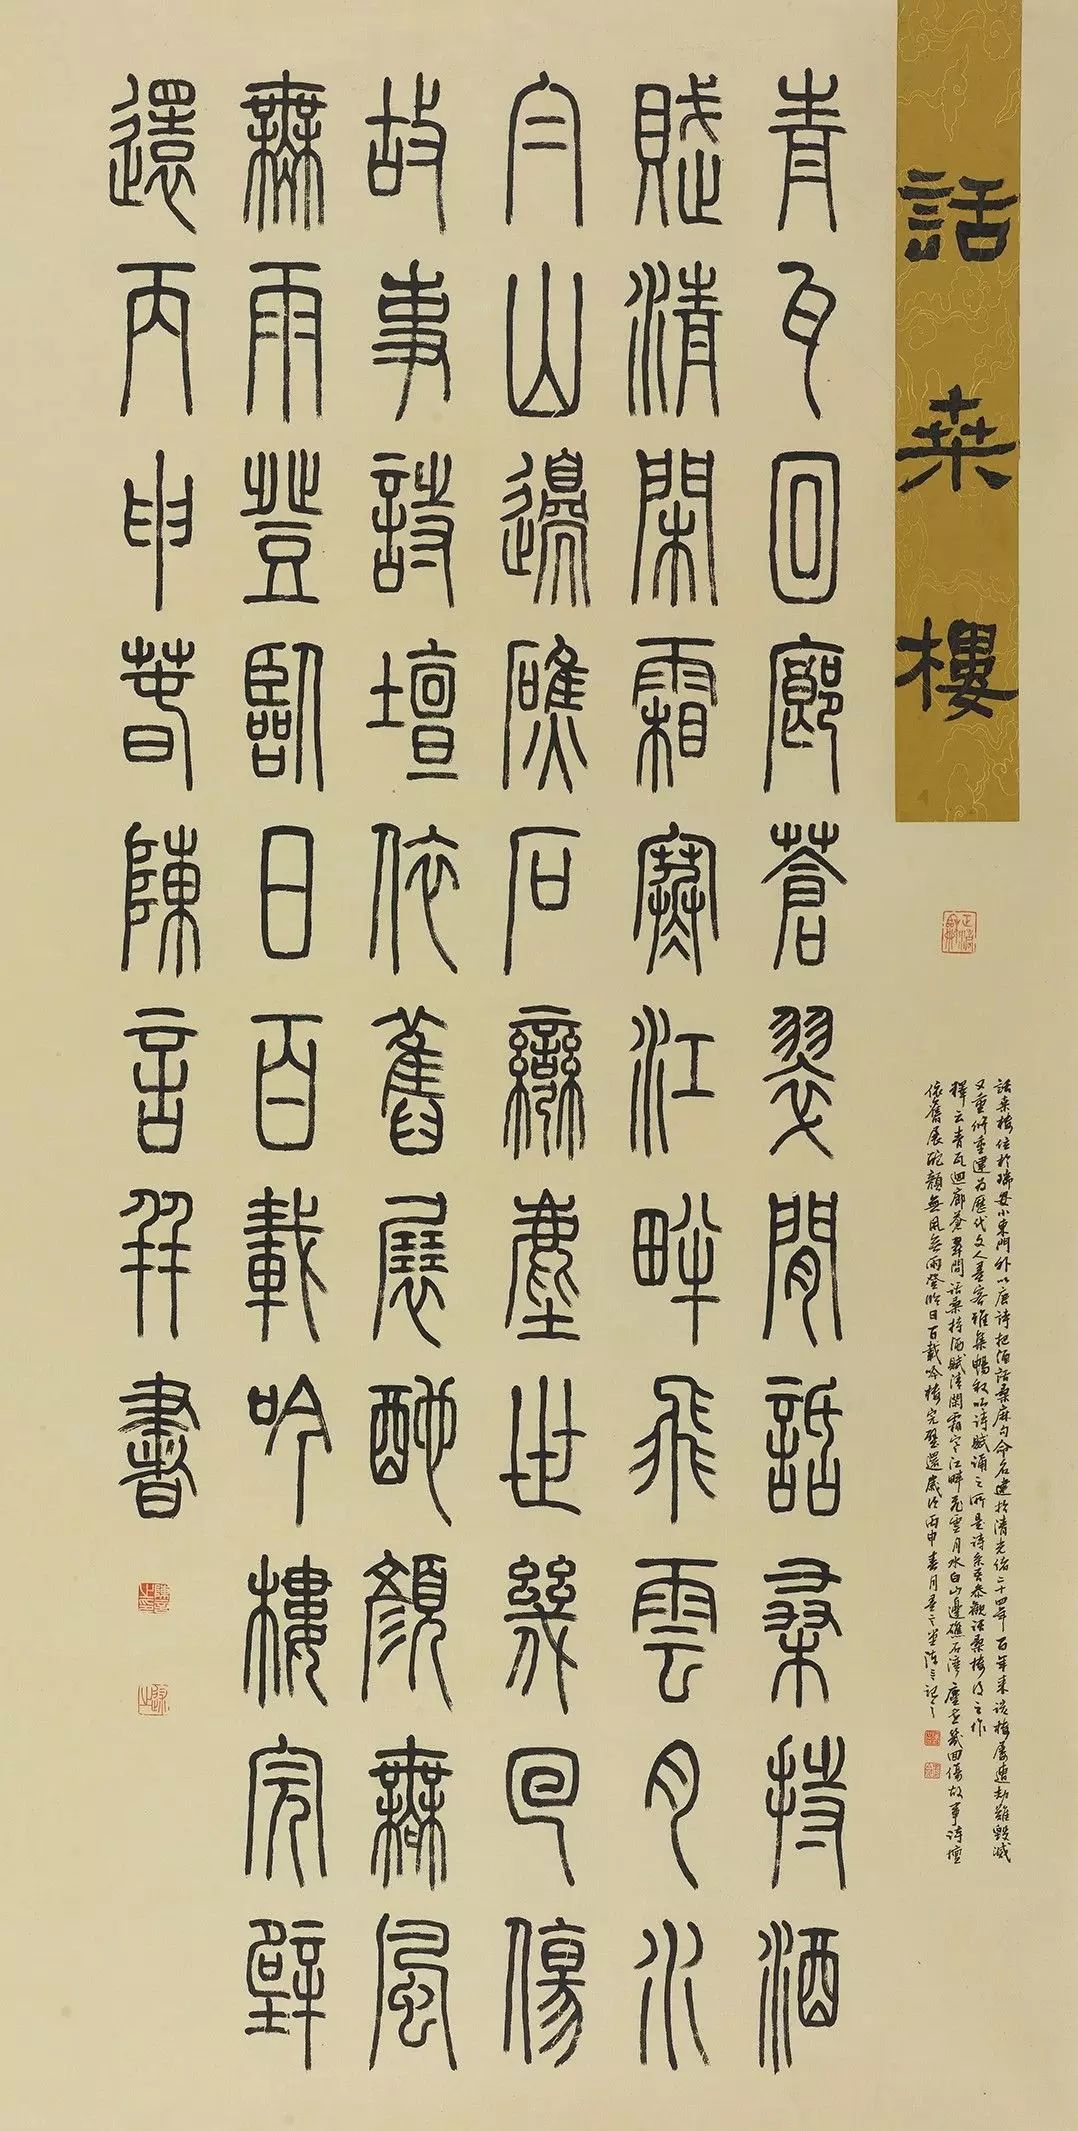 話桒樓
話桒樓位於瑞安小東門外以唐詩把酒話桑麻句命名建於清光緒二十四年百年來該樓屢遭劫難毀滅
又重修重建為歷代文人墨客雅集暢敘吟詩賦誦之所是詩系吾參觀話桑樓得之作
釋云青瓦迴廊蒼翠間話桑持酒賦清閑霜寒江畔飛雲月水白山邊礁石灣塵世幾回傷故事詩壇
依舊展酡顏無風無雨登臨日百載吟樓完璧還歲次丙申春月陳言記之
青瓦回廊蒼翠間話桑持酒
賦清閑霜寒江畔飛雲月水
白山邊礁石灣塵世幾回傷
故事詩壇依舊展酡顏無風
無雨登臨日百載吟樓完璧
還丙申春陳言并書